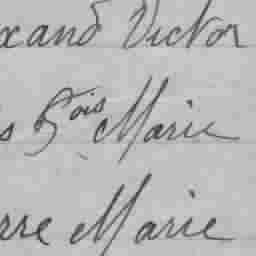 xand Victor
s Fçois Marie
rre Marie